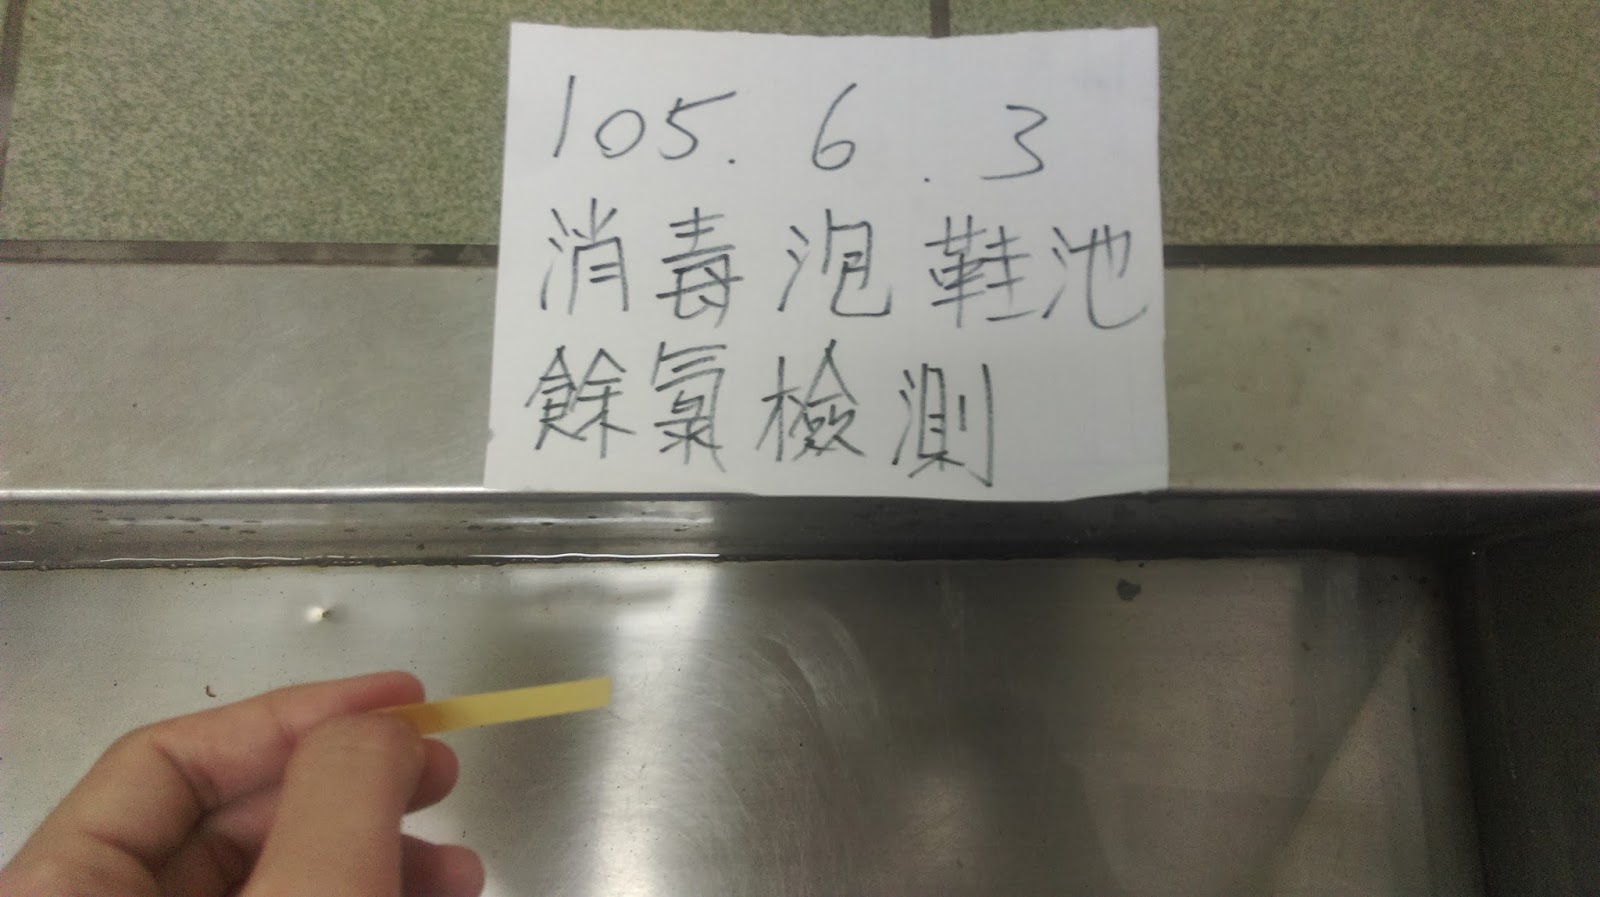 105. 6 . 3
消毒泡鞋池
餘氯檢測